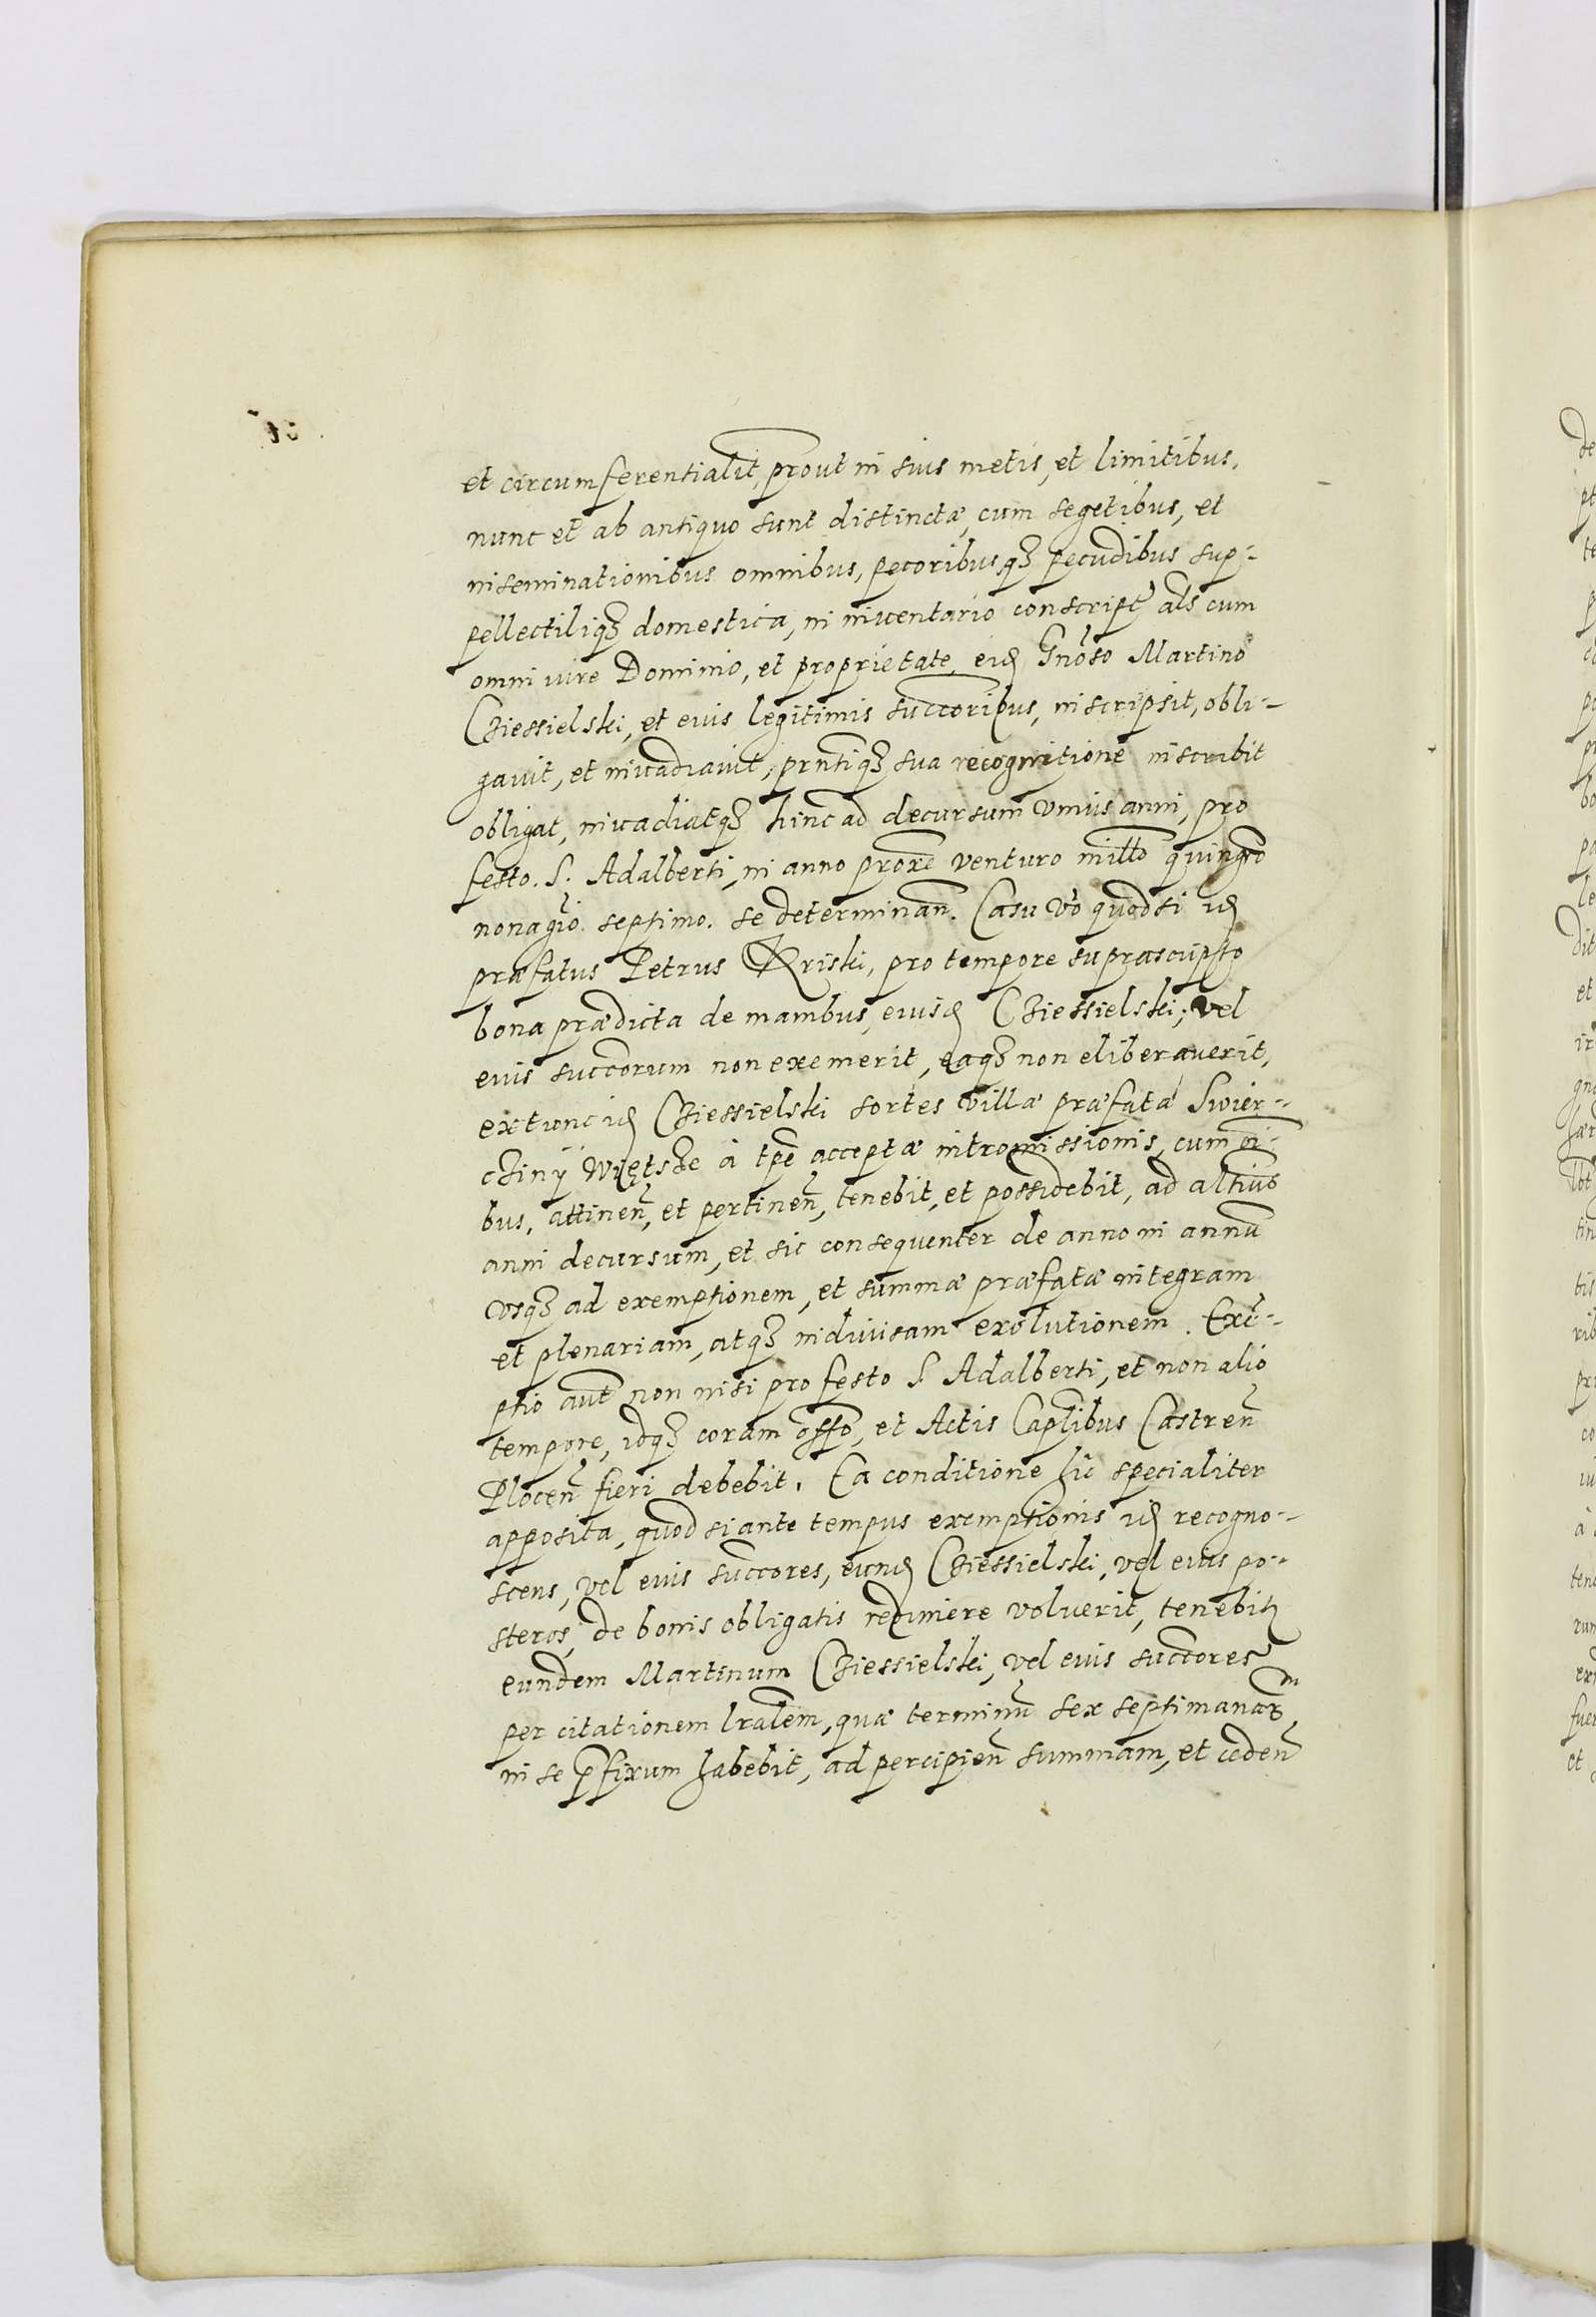 et circumferentialit, prout in suis metis, et limitibus,
nunc et ab antiquo sunt distinctæ, cum segetibus, et
inseminationibus omnibus, pecoribusq₃ pecudibus sup-
pellectiliq₃ domestica, in inventario conscript als cum
omni iure Dominio, et proprietate, eid Gnoso Martino
Cziessielski, et eius legitimis succoribus, inscripsit, obli-
gavit, et invadiavit, prntiq₃ sua recognitione inscribit
obligat, invadiatq₃ hinc ad decursum unius anni, pro
festo. S. Adalberti, in anno proxe venturo millo quingmo
nonagio. septimo. se determinan. Casu vo quodsi id
præfatus Petrus Kriski, pro tempore suprascripto
bona prædicta de manibus, eiusd Cziessielski; vel
eius succorum non exemerit, eaq₃ non eliberaverit,
extunc id Cziessielski sortes villæ præfatæ Swier-
cziny Więtsze à tpe acceptæ intromissionis, cum oi-
bus, attinen, et pertinen, tenebit, et possidebit, ad altius
anni decursum, et sic consequenter de anno in annu
usq₃ ad exemptionem, et summæ præfatæ integram
et plenariam, atq₃ indivisam exolutionem. Exe-
ptio aut non nisi pro festo S Adalberti, et non alio
tempore, idq₃ coram offo, et Actis Caplibus Castren
Plocen fieri debebit. Ea conditione hic specialiter
apposita, quod si ante tempus exemptionis id recogno-
scens, vel eius succores, eund Cziessielski, vel eius po-
steros, de bonis obligatis redimere voluerit, tenebit
eundem Martinum Cziessielski, vel eius succores
per citationem lralem, quæ terminu sex septimanarm
in se pfixum habebit, ad percipien summam, et ceden